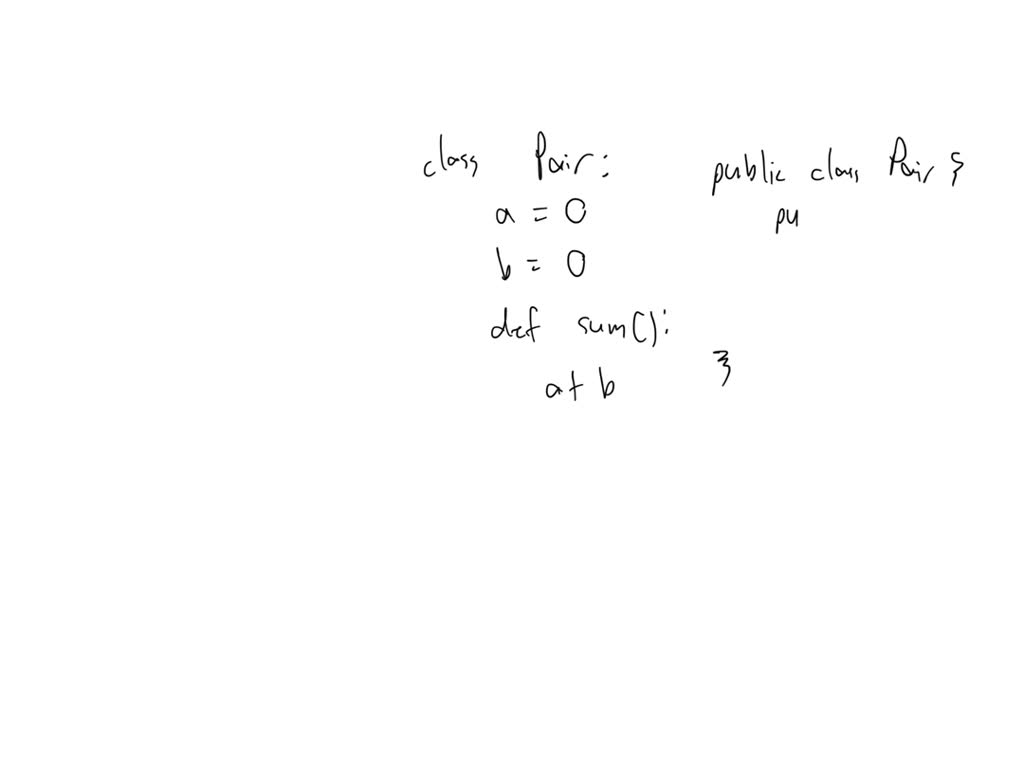 class Pair:
a = 0
b = 0
def sum():
a + b
public class Pair {
pu
}